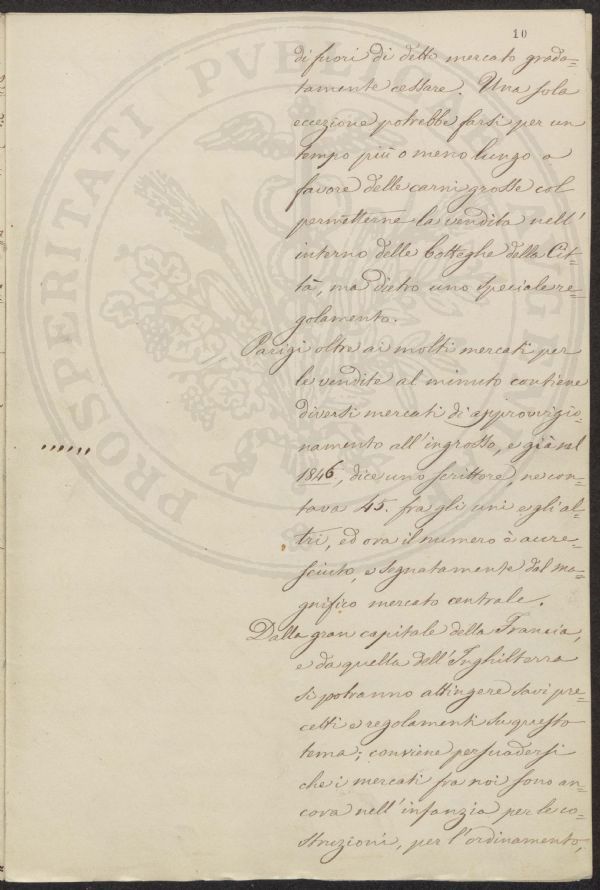 10
di fuori di detto mercato grada=
tamente cessare. Una sola
eccezione potrebbe farsi per un
tempo più o meno lungo a
favore delle carni grosse col
permetterne la vendita nell'
interno delle botteghe della Cit=
tà, ma dietro uno speciale re=
golamento.
Parigi oltre ai molti mercati per
le vendite al minuto contiene
diversi mercati di approvigio=
namento all'ingrosso, e già nel
1846, dice uno scrittore, ne con=
tava 45. fra gli uni e gli al=
tri, ed ora il numero è accre=
sciuto, e segnatamente dal ma=
gnifico mercato centrale.
Dalla gran capitale della Francia,
e da quella dell'Inghilterra
si potranno attingere savi pre=
cetti e regolamenti su questo
tema; conviene persuadersi
che i mercati fra noi sono an=
cora nell'infanzia per le co=
struzioni, per l'ordinamento,
PROSPERITATI PVBLICAE AVGENDAE